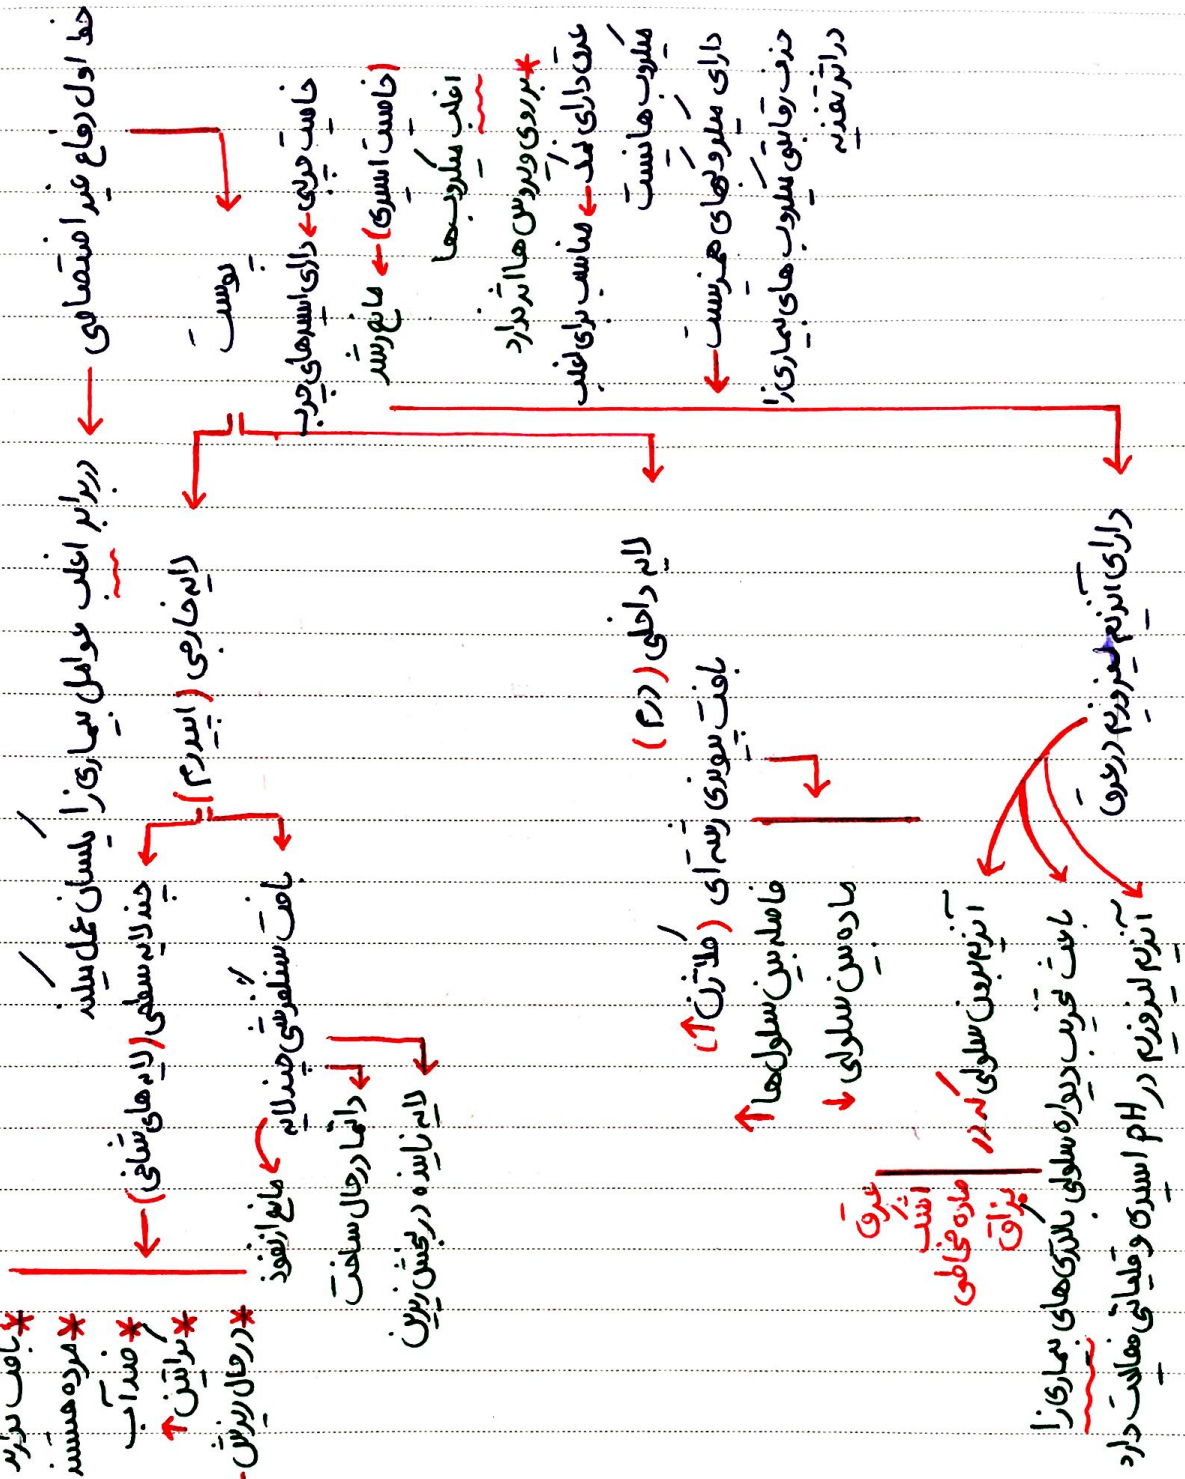 خط اول دفاع غیر اختصاصی
در برابر اغلب عوامل بیماری زا یکسان عمل میکند
پوست
خاصیت چربی ← دارای اسیدهای چرب
(خاصیت اسیدی) ← مانع رشد
اغلب میکروب ها
*بر روی ویروس ها اثر ندارد
عرق دارای نمک ← مناسب برای اغلب
میکروب ها نیست
دارای میکروبهای همزیست ←
حذف رقابتی میکروب های بیماری زا
در اثر تغذیه
لایه خارجی (اپیدرم)
چند لایه سطحی (لایه های شاخی) ←
*در حال ریزش
*کراتین ↑
*ضد آب
*مرده هستند
*بافت ندارند
بافت سنگفرشی چند لایه
مانع از نفوذ
دائما در حال ساخت
لایه زاینده در بخش زیرین
لایه داخلی (درم)
بافت پیوندی رشته ای (کلاژن ↑)
فاصله بین سلول ها ↑
ماده بین سلولی ↓
دارای آنزیم لیزوزیم در عرق
آنزیم برون سلولی که در
بزاق
ماده مخاطی
اشک
عرق
باعث تخریب دیواره سلولی باکتری های بیماری زا
آنزیم لیزوزیم در pH اسیدی و قلیائی فعالیت دارد